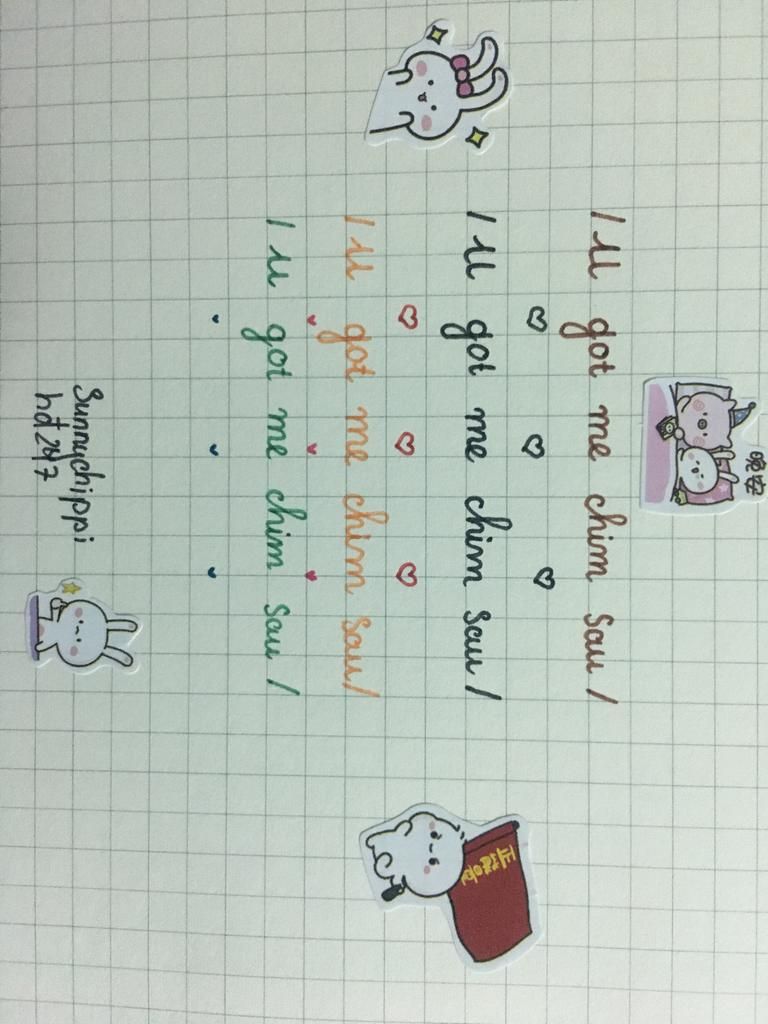 晚安
/ ill got me chim sau /
/ ill got me chim sau /
/ ill got me chim sau /
/ ill got me chim sau /
Sunnychippi
hd247